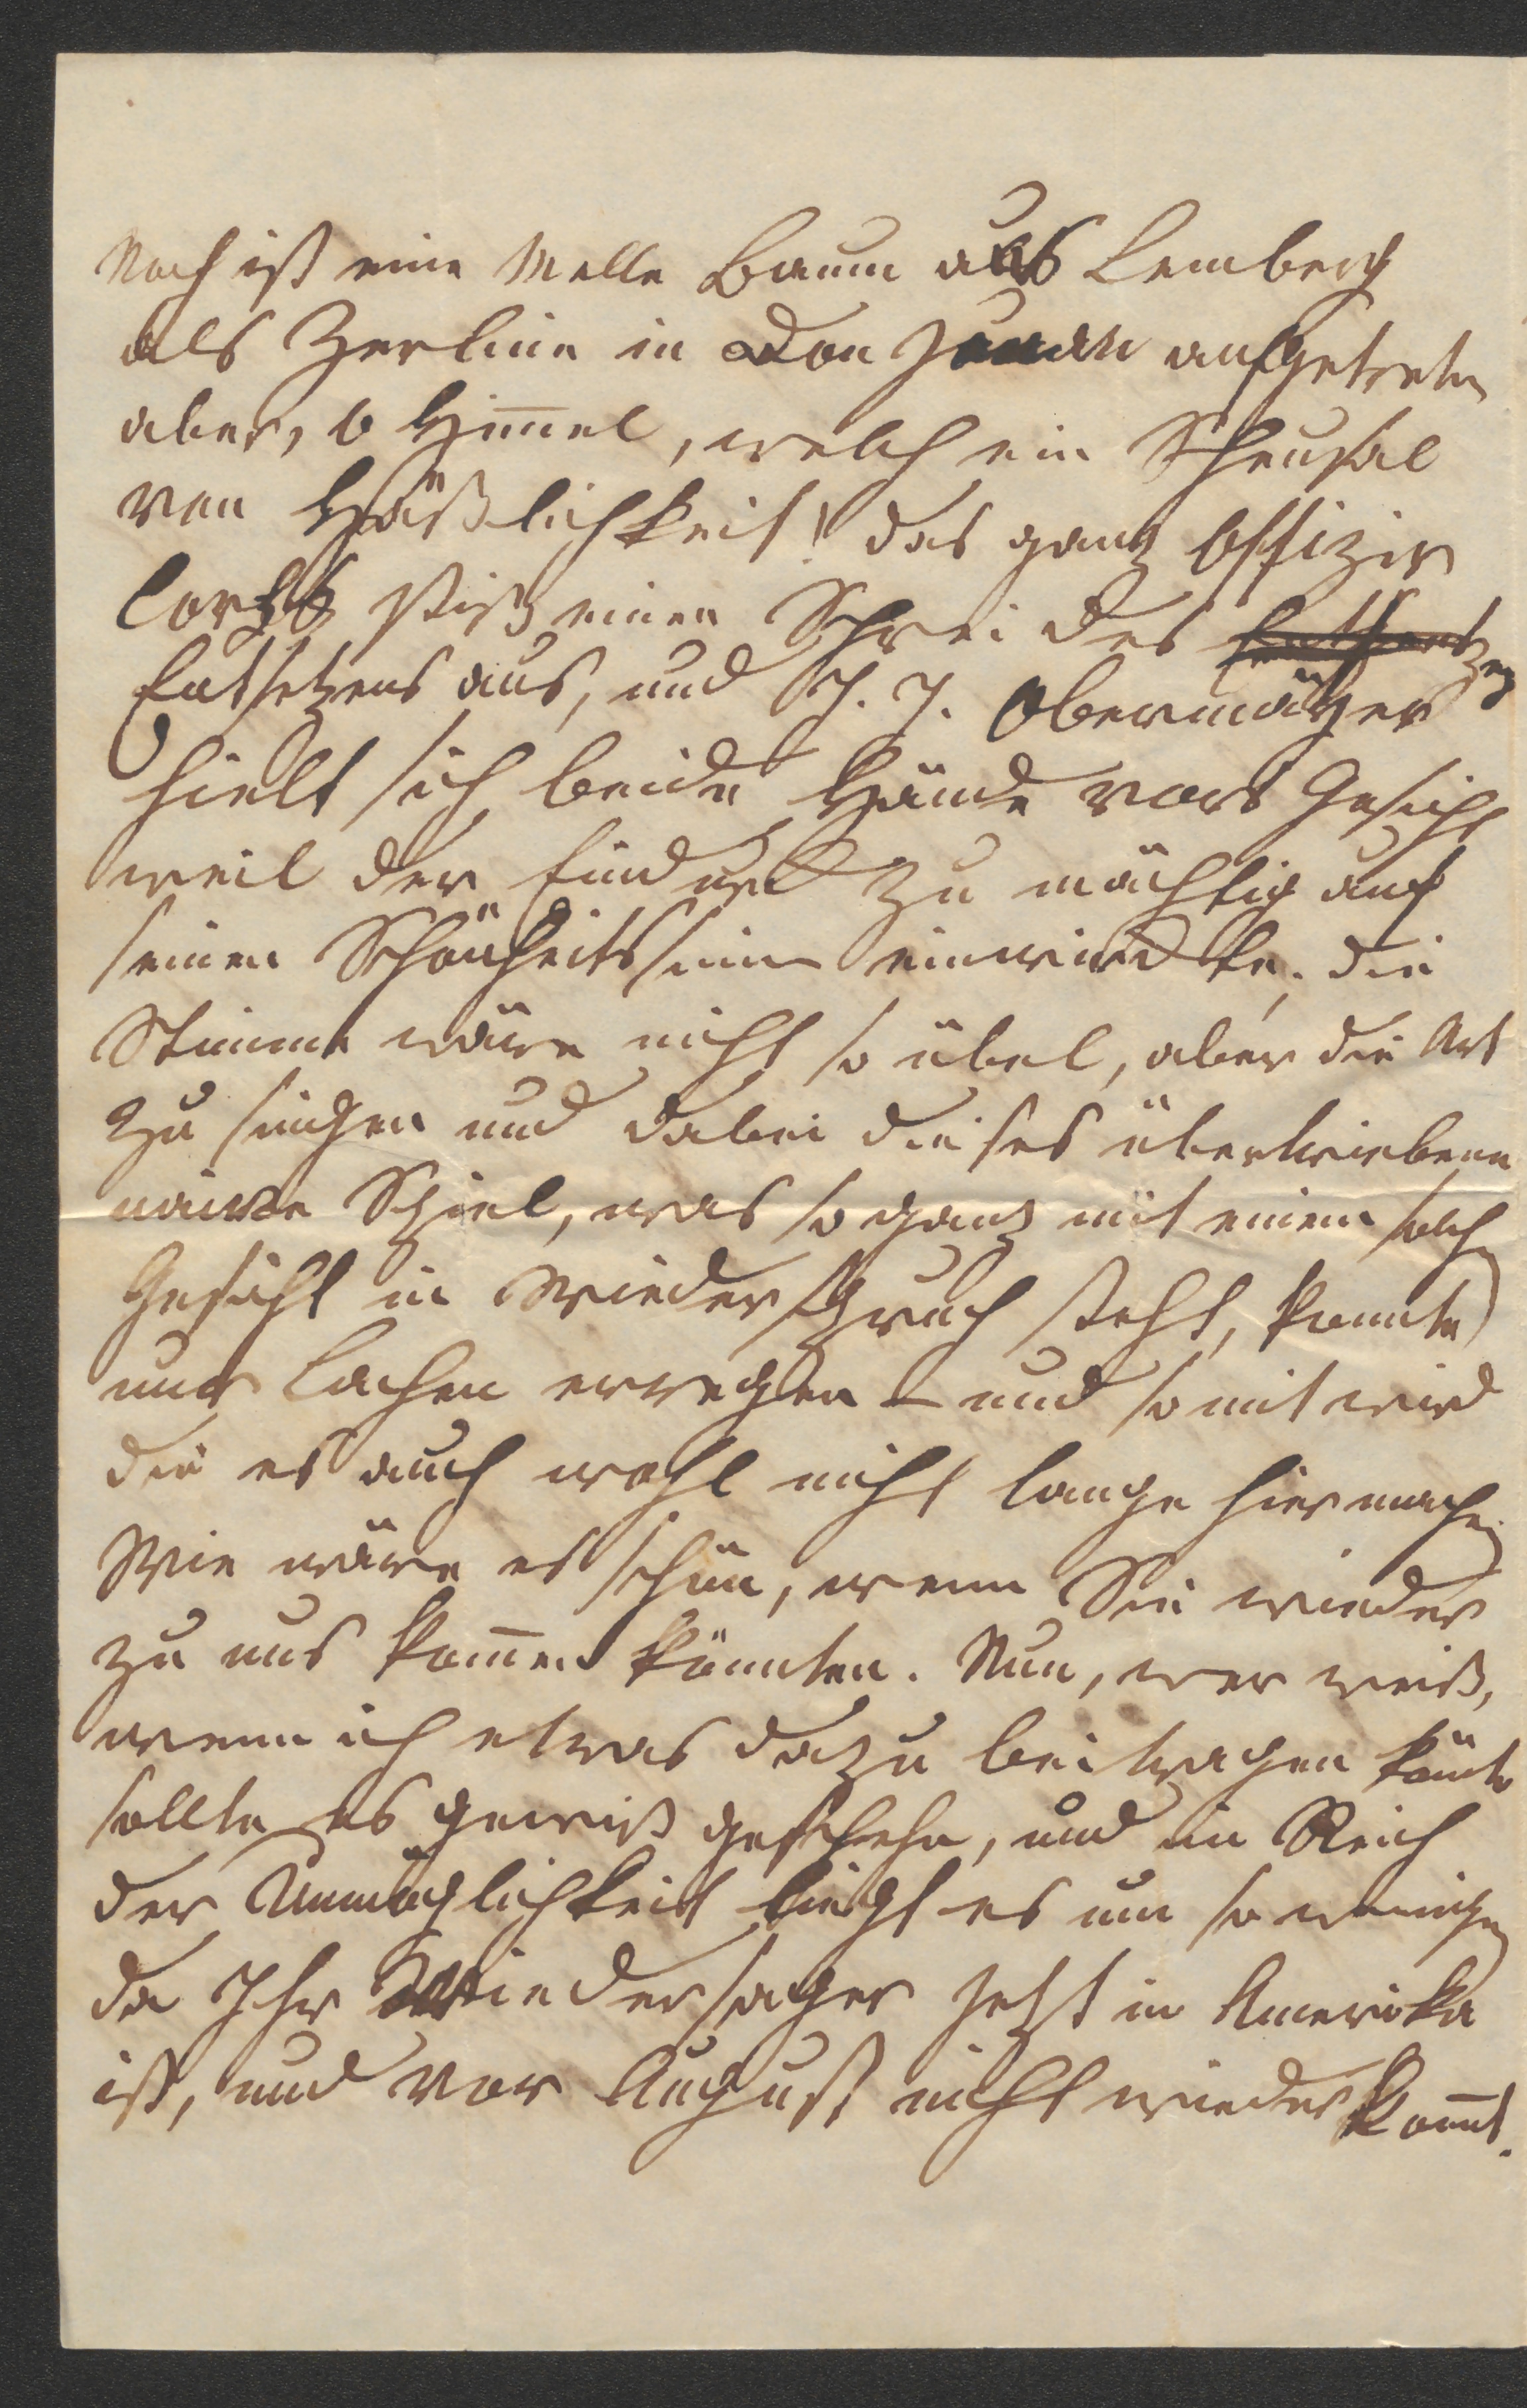 Noch ist eine Melle Baum aus Lemberg
als Zerline in Don Juan aufgetreten
aber, o Him̅el, welch ein Scheusal
von Häßlichkeit! das ganz Offizir
Corps stieß einen Schrei des
Entsetzens aus, und Obermäyer
hielt sich beide Hände vors Gesicht
weil der Eindruck zu mächtig auf
seinen Schönheitssinn einwirckte. die
Stimme wäre nicht so übel, aber die Art
zu singen und dabei dieses übertriebene
naive Spiel, was so ganz mit einem solchen
Gesicht in Wiederspruch steht, konnte
nur Lachen erregen – und somit wird
die es auch wohl nicht lange hier machen.
Wie wäre es schön, wenn Sie wieder
zu uns kom̅en könnten. Nun, wer weiß,
wenn ich etwas dazu beitragen könnte
sollte es gewiß geschehn, und im Reich
der Unmöglichkeit liegt es um so weniger
da Ihr Wiedersager jetzt in Amerika
ist, und vor August nicht wieder kom̅t.